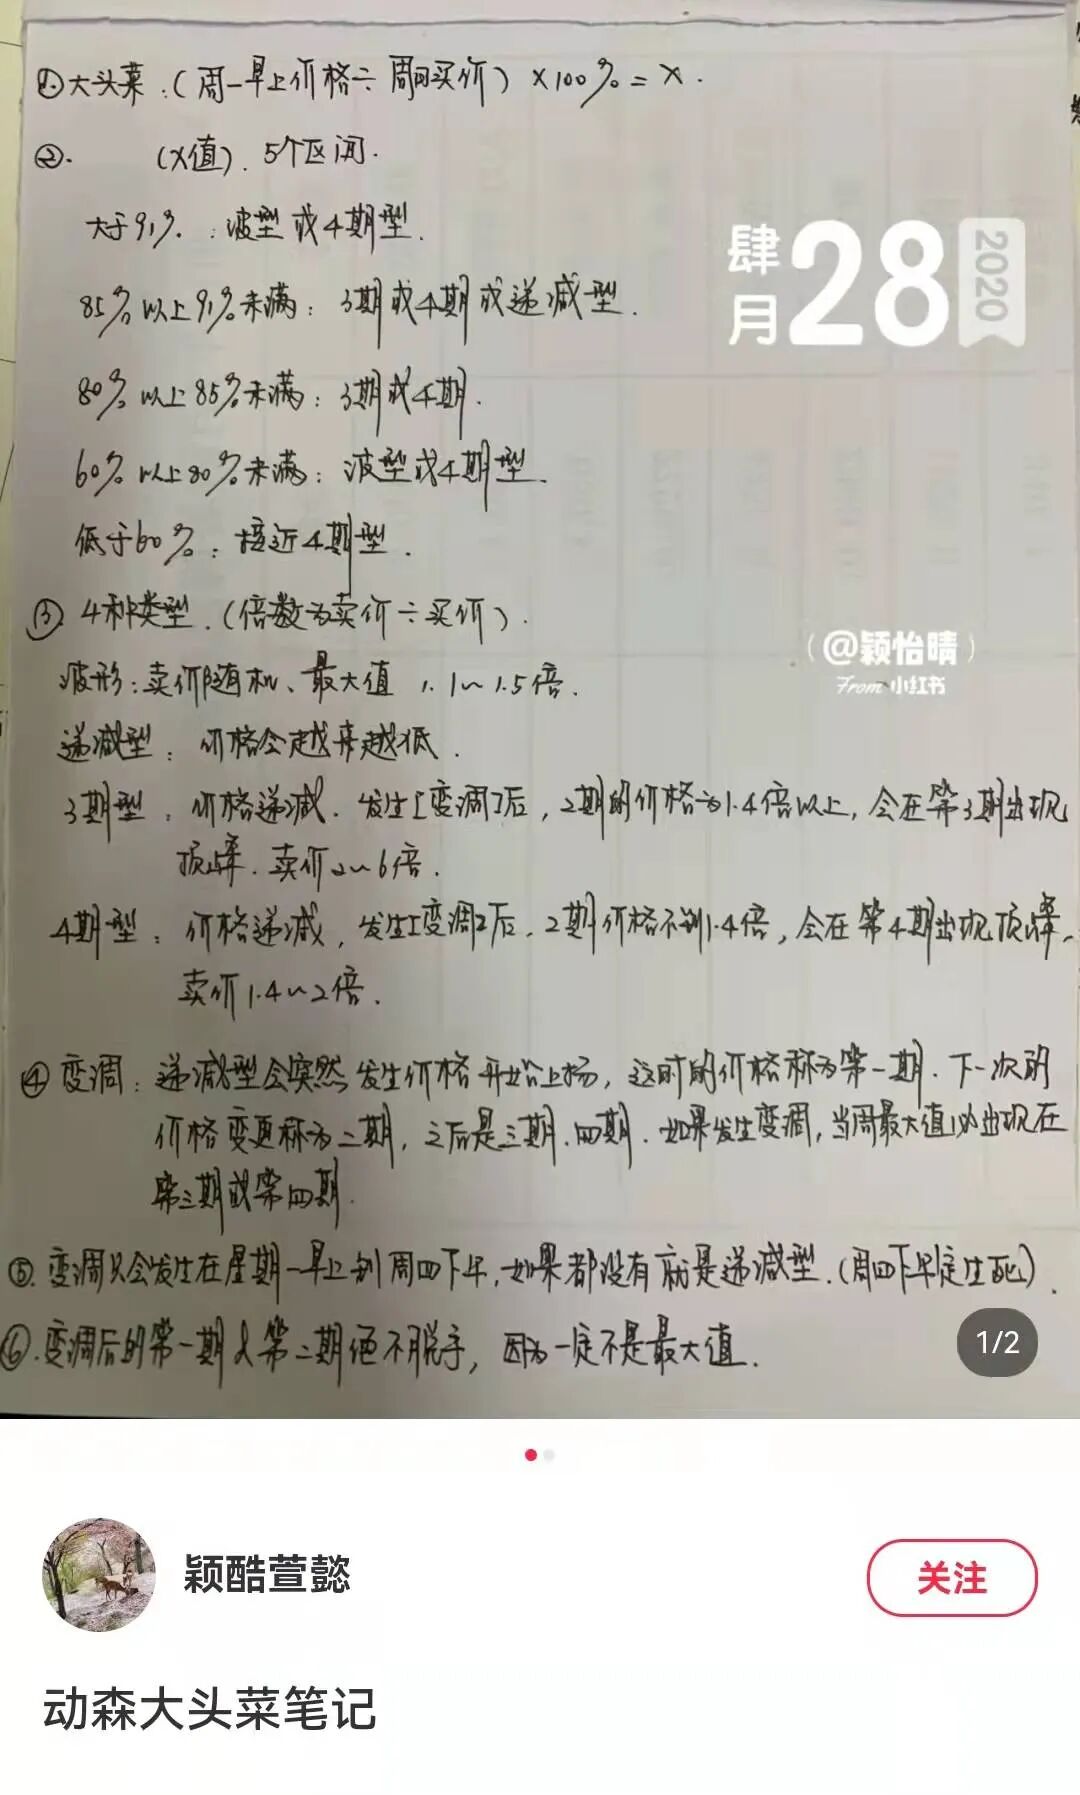 ①大头菜：(周一早上价格÷周日买价)×100%=X.
②. (X值). 5个区间.
大于91%：波型或4期型.
85%以上91%未满：3期或4期或递减型.
80%以上85%未满：3期或4期.
60%以上80%未满：波型或4期型.
低于60%：接近4期型.
③. 4种类型.(倍数为卖价÷买价).
波形：卖价随机、最大值 1.1~1.5倍.
递减型：价格会越来越低.
3期型：价格递减.发生[变调]后，2期的价格为1.4倍以上，会在第3期出现
顶峰.卖价2~6倍.
4期型：价格递减，发生[变调]后，2期价格不到1.4倍，会在第4期出现顶峰，
卖价1.4~2倍.
④变调：递减型会突然发生价格开始上扬，这时的价格称为第一期.下一次的
价格变更称为二期，之后是三期.四期.如果发生变调，当周最大值必出现在
第三期或第四期.
⑤.变调只会发生在星期一早上到周四下午，如果都没有就是递减型.(周四下午定生死).
⑥.变调后的第一期&第二期便不脱手，因为一定不是最大值.
肆月28 2020
(@颖怡晴)
From 小红书
1/2
颖酷萱懿
关注
动森大头菜笔记